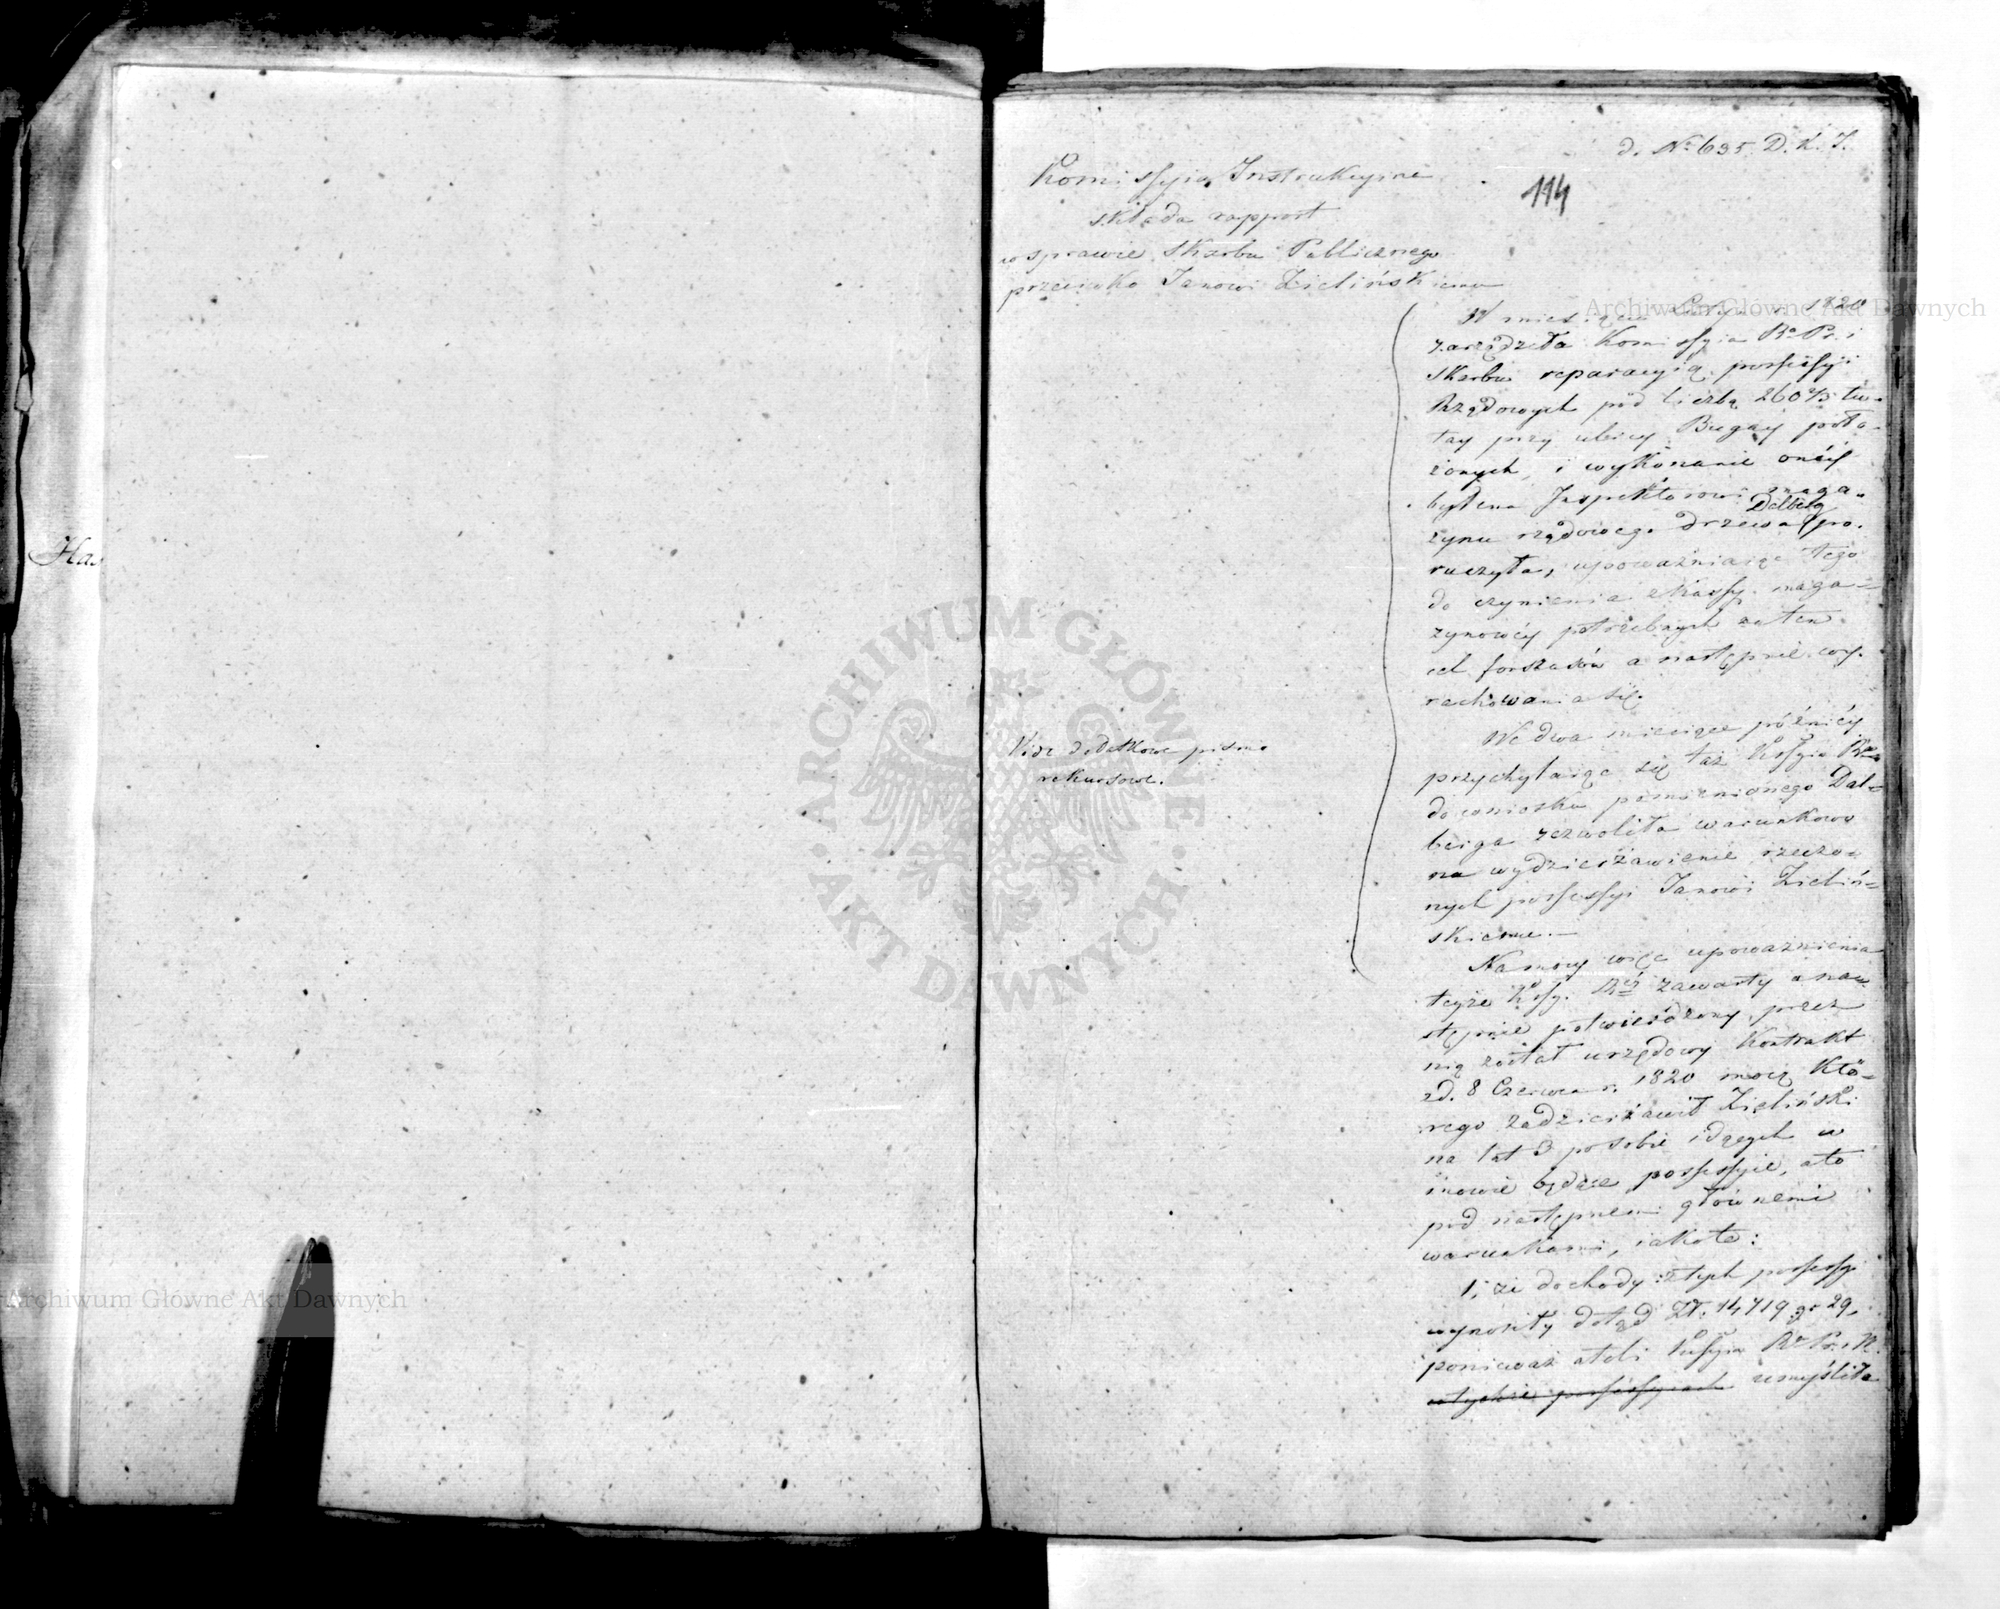 d. No 635 D. K. I.
114
Kommissyia Instrukcyina
składa rapport
w sprawie Skarbu Publicznego
przeciwko Janowi Zielińskiemu
W miesiącu 1820
zarządziła Kommissyia Ra Pr. i
Skarbu reparacyią possessyji
Rządowych pod liczbą 260 2/3 tu-
tay przy ulicy Bugay poło-
żonych, i wykonanie onéy
byłemu Inspektorowi maga-
zynu rządowego drzewa Dalbeig po-
ruczyła, upoważniaiąc tego
do czynienia z kassy maga-
zynowéy potrzebnych na ten
cel forszusów a następnie wy-
rachowania się.
We dwa miesiące późniéy
przychylaiąc się taż Kossyia Rwa
do wniosku pomienionego Dal-
beiga zezwoliła warunkowo
na wydzierżawienie rzeczo-
nych possessyi Janowi Zieliń-
skiemu.—
Na mocy więc upoważnienia
teyże Kossy. Réy zawarty a na-
stępnie potwierdzony przez
nią został urzędowy kontrakt
zd. 8 Czerwca r. 1820 mocą któ-
rego zadzierżawił Zieliński
na lat 3 po sobie idących w
mowie będące possessyie, a to
pod następnemi głównemi
warunkami, iakoto:
1, że dochody z tych possessyi
wynosiły dotąd Zł. 14,719 gr 29,
ponieważ atoli Kossyia Ra Pr. i S.
w tychże possessyiach umyśliła
Vide dodatkowe pismo
rekursowe.
Has
ARCHIWUM GŁÓWNE
AKT DAWNYCH
Archiwum Główne Akt Dawnych
Archiwum Główne Akt Dawnych